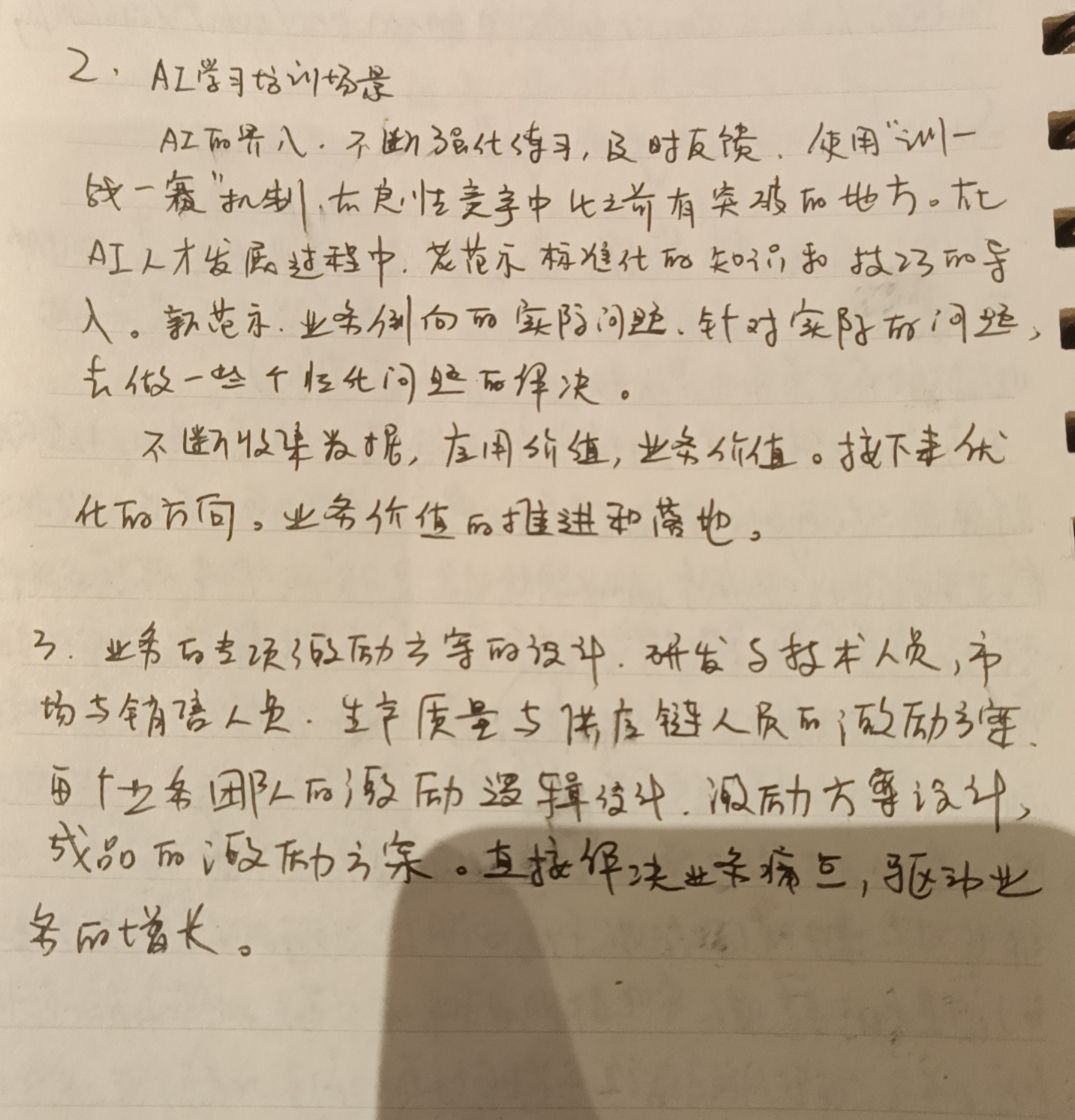 2. AI学习培训场景
AI的介入. 不断强化练习, 及时反馈. 使用“训一
战一复”机制. 在良性竞争中比之前有突破的地方。在
AI人才发展过程中. 老范示 标准化的知识和技巧的导
入。新范示. 业务侧向的实际问题. 针对实际的问题,
去做一些个性化问题的解决。
不断收集数据, 应用价值, 业务价值。接下来优
化的方向。业务价值的推进和落地。
3. 业务的专项激励方案的设计. 研发与技术人员, 市
场与销售人员. 生产质量与供应链人员的激励方案.
每个业务团队的激励逻辑设计. 激励方案设计,
成品的激励方案。直接解决业务痛点, 驱动业
务的增长。